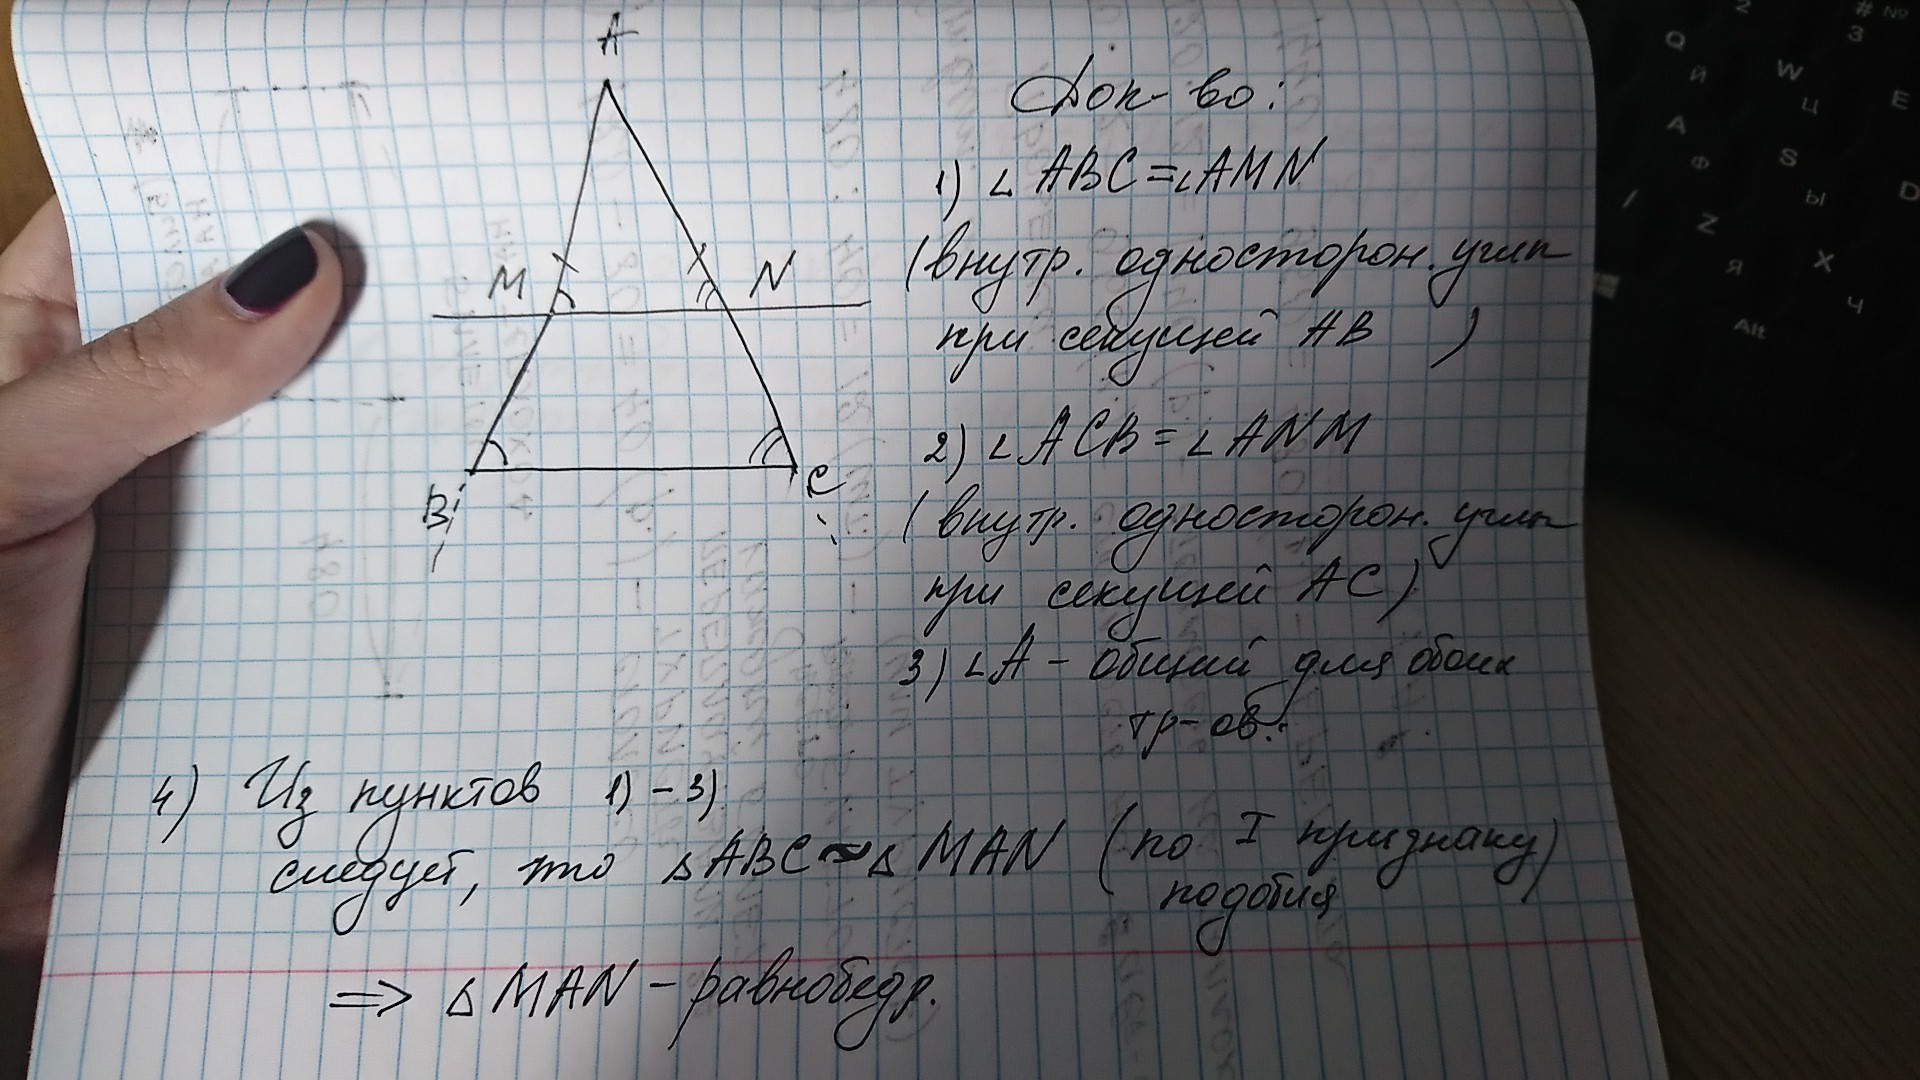 A
M
N
B
C
Док-во:
1) ∠ABC=∠AMN
(внутр. односторон. углы
при секущей AB )
2) ∠ACB=∠ANM
(внутр. односторон. углы
при секущей AC)
3) ∠A - общий для обоих
тр-ов.
4) Из пунктов 1) - 3)
следует, что △ABC ~ △MAN (по I признаку)
подобия
=> △MAN - равнобедр.
Q
Й
W
Ц
E
2
# №
3
A
Ф
S
Ы
D
Z
Я
X
Ч
Alt